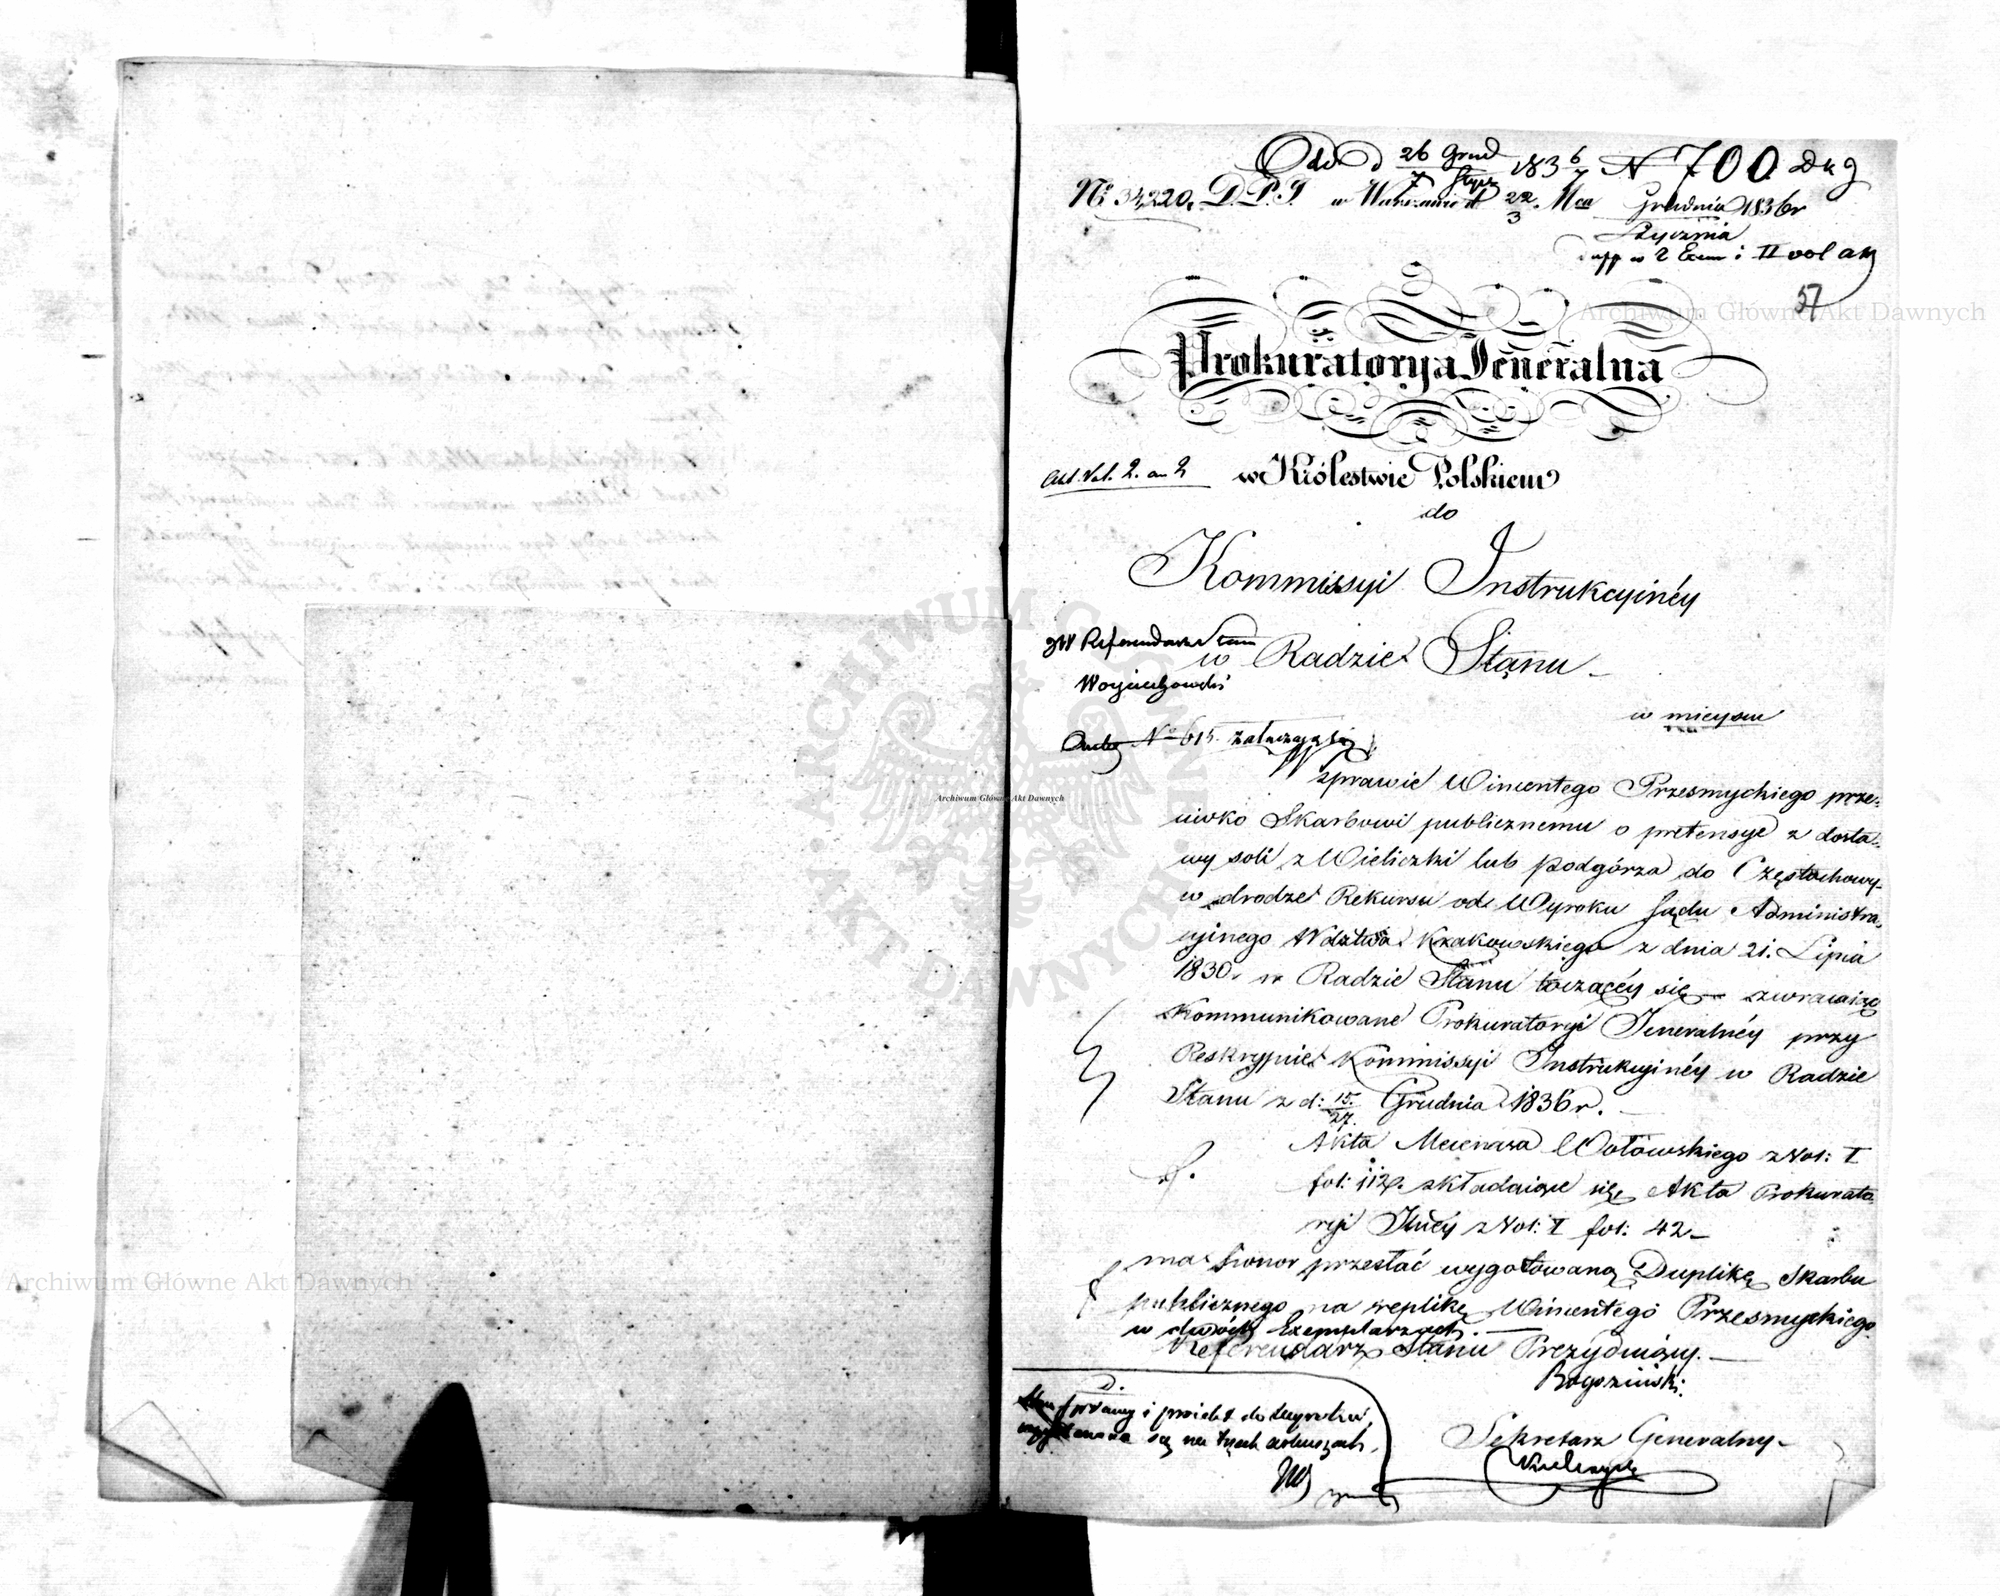 Odd d 26 Grud 1836/7 N 700 DKG
7 Stycz
Nº 34,220. D.P.J. w Warszawie d 22. Mca Grudnia 1836 r
3 Stycznia
dupp w 2 Exem i II vol akt
57
Prokuratorya Jeneralna
Akt. Vol. 2. an 2
w Królestwie Polskiem
do
Kommissyi Instrukcyinéy
JW Referendarz Stanu
w Radzie Stanu
Woyciechowski
w mieyscu
Nº 615. załączają się
W sprawie Wincentego Przesmyckiego prze-
ciwko Skarbowi publicznemu o pretensye z dosta-
wy soli z Wieliczki lub Podgórza do Częstochowy
w drodze Rekursu od Wyroku Sądu Administra-
cyjnego Wdztwa Krakowskiego z dnia 21. Lipca
1830 r. w Radzie Stanu toczącéy się — zwracaiąc
Kommunikowane Prokuratoryi Jeneralnéy przy
Reskrypcie Kommissyi Instrukcyinéy w Radzie
Stanu z d: 15./27. Grudnia 1836 r.
Akta Mecenasa Wołowskiego z Vol: I
fol: 112. składaiące się, Akta Prokurato-
ryi Jlnéy z Vol: I fol: 42 —
ma honor przesłać wygotowaną Duplikę Skarbu
publicznego na replikę Wincentego Przesmyckiego
w dwóch Exemplarzach. —
Referendarz Stanu Prezyduiący. —
Rogoziński
D.
Stan sprawy i proiekt do wyroku,
są na trzech arkuszach.
Sekretarz Generalny
Archiwum Główne Akt Dawnych
Archiwum Główne Akt Dawnych
Archiwum Główne Akt Dawnych
ARCHIWUM GŁÓWNE AKT DAWNYCH